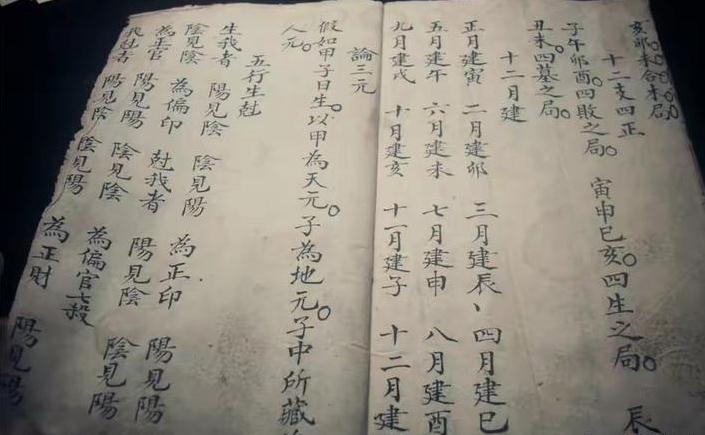 亥卯未合木局。
十二支四正
子午卯酉。四敗之局。寅申巳亥。四生之局。辰
丑未。四墓之局。
十二月建
正月建寅 二月建卯 三月建辰、四月建巳
五月建午 六月建未 七月建申 八月建酉
九月建戌 十月建亥 十一月建子 十二月建
論三元
假如甲子日生。以甲為天元。子為地元。子中所藏
人元。
五行生尅
生我者 陽見陰 陰見陽 為正印 陽見陽
陰見陰 為偏印 尅我者 陽見陰 陰見陽
為正官 陽見陽 陰見陰 為偏官七殺
我尅者 陽見陰 陰見陽 為正財 陽見陽